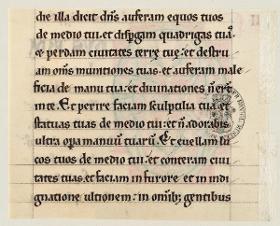 die illa dicit dn̄s auferam equos tuos
de medio tui: et disꝑgam quadrigas tua
et perdam ciuitates terre tue: et destruā
om̄s munitiones tuas: et auferam male
ficia de manu tua: et diuinationes n̄ erūt
in te. Et perire faciam sculptilia tua: et
statuas tuas de medio tui: et n̄ adorabis
ultra opa manuū tuarū. Et euellam lu
cos tuos de medio tui: et conteram ciui
tates tuas. et faciam in furore et in indi
gnatione ultionem: in om̄ib; gentibus